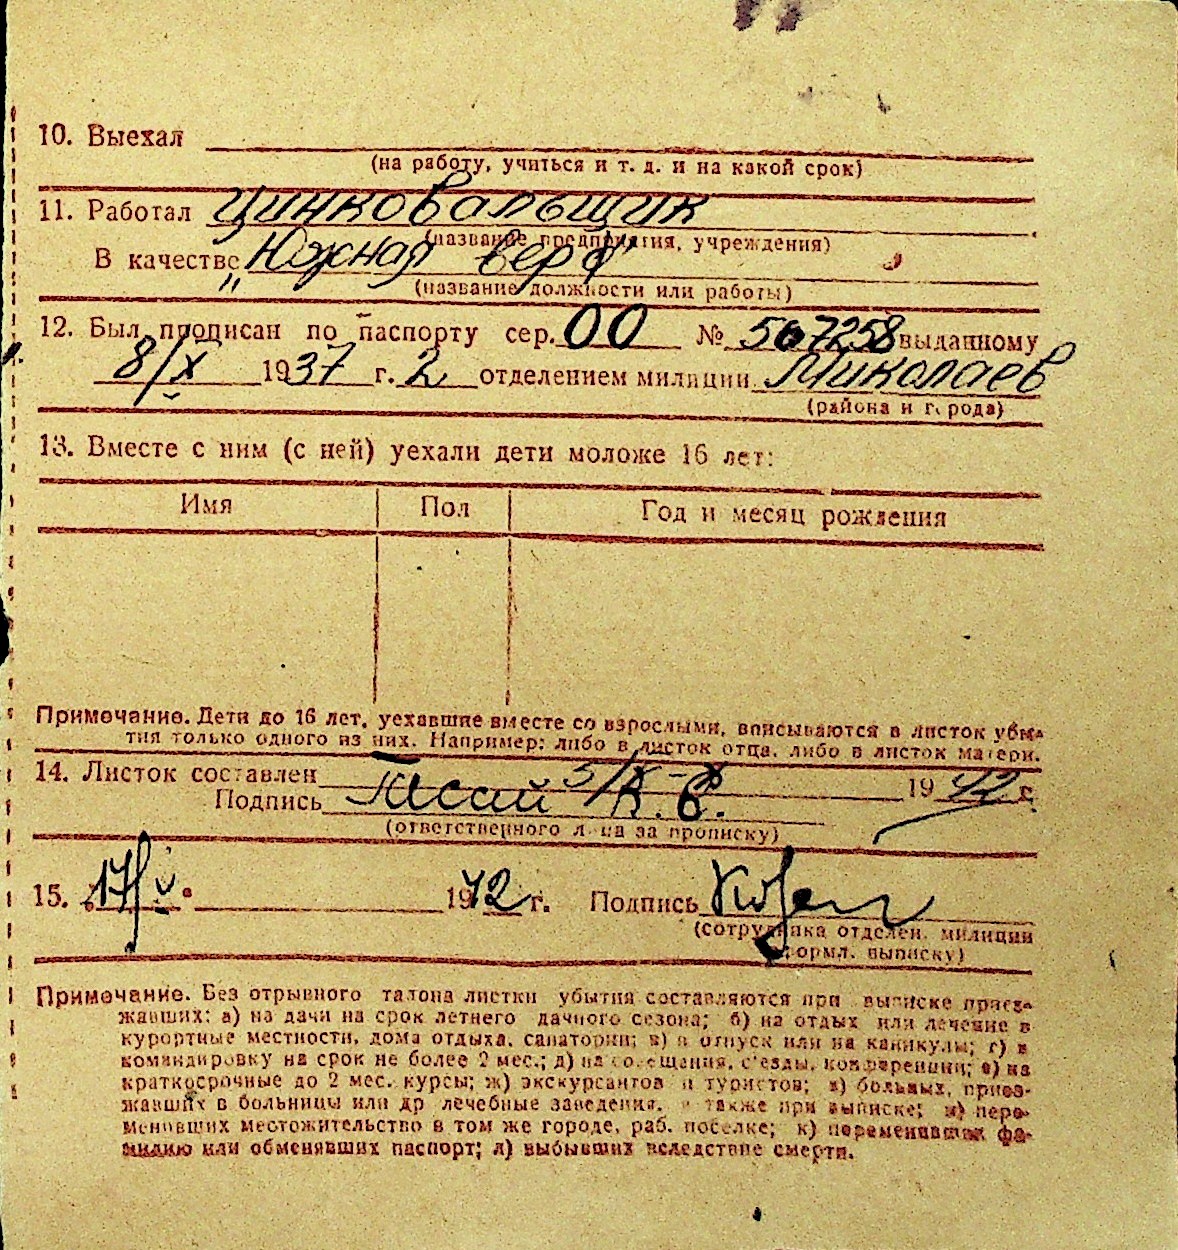 10. Выехал
(на работу, учиться и т. д. и на какой срок)
11. Работал цинковальщик
(название предприятия, учреждения)
В качестве „Южная верфь"
(название должности или работы)
12. Был прописан по паспорту сер. ОО № 567258 выданному
8/X 1937 г. 2 отделением милиции Николаев
(района и города)
13. Вместе с ним (с ней) уехали дети моложе 16 лет:
Имя Пол Год и месяц рождения
Примечание. Дети до 16 лет, уехавшие вместе со взрослыми, вписываются в листок убы-
тия только одного из них. Например: либо в листок отца, либо в листок матери.
14. Листок составлен 1942 г.
Подпись
(ответственного лица за прописку)
15. 17/V 1942 г. Подпись
(сотрудника отделен. милиции
оформл. выписку)
Примечание. Без отрывного талона листки убытия составляются при выписке приез-
жавших: а) на дачи на срок летнего дачного сезона; б) на отдых или лечение в
курортные местности, дома отдыха, санатории; в) в отпуск или на каникулы; г) в
командировку на срок не более 2 мес.; д) на совещания, с'езды, конференции; е) на
краткосрочные до 2 мес. курсы; ж) экскурсантов и туристов; з) больных, приез-
жавших в больницы или др лечебные заведения, а также при выписке; и) пере-
менивших местожительство в том же городе, раб. поселке; к) переменивших фа-
милию или обменявших паспорт; л) выбывших вследствие смерти.